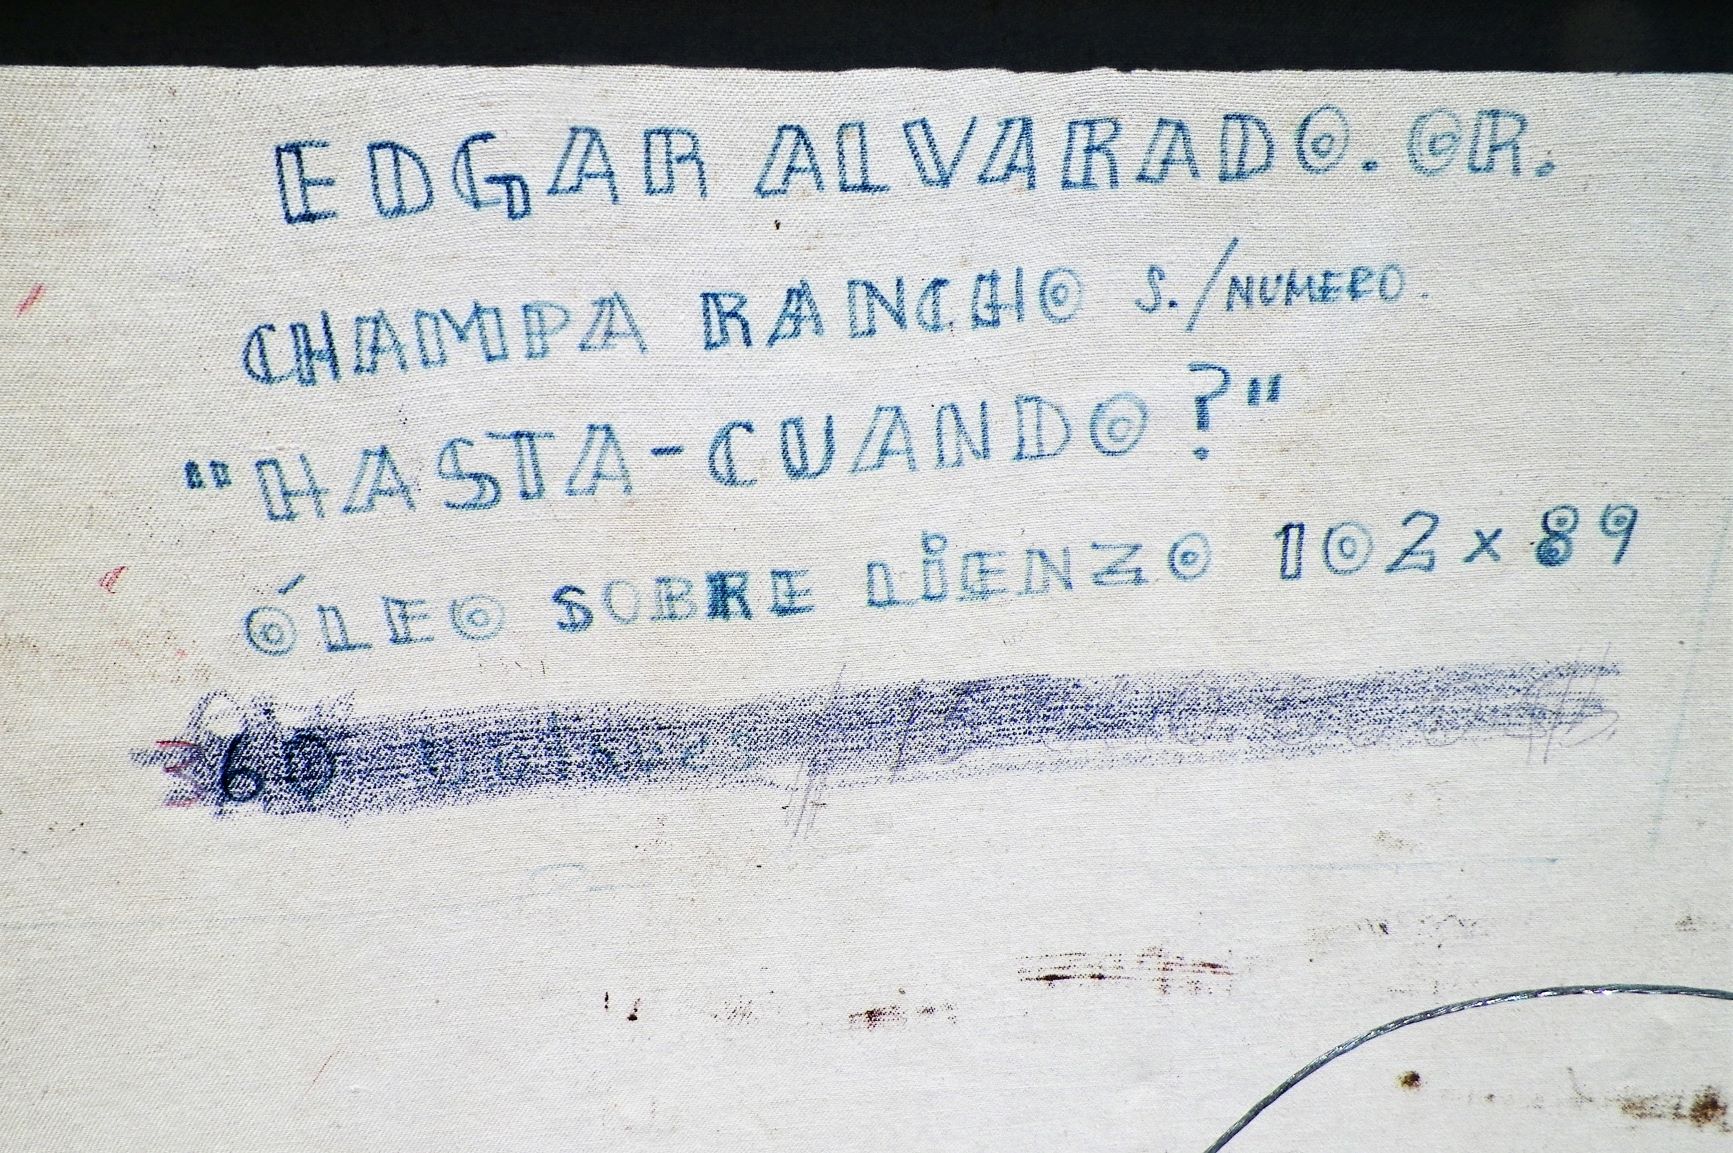 EDGAR ALVARADO. OR.
CHAMPA RANCHO S./NUMERO.
"HASTA-CUANDO?"
ÓLEO SOBRE LIENZO 102 x 89
60